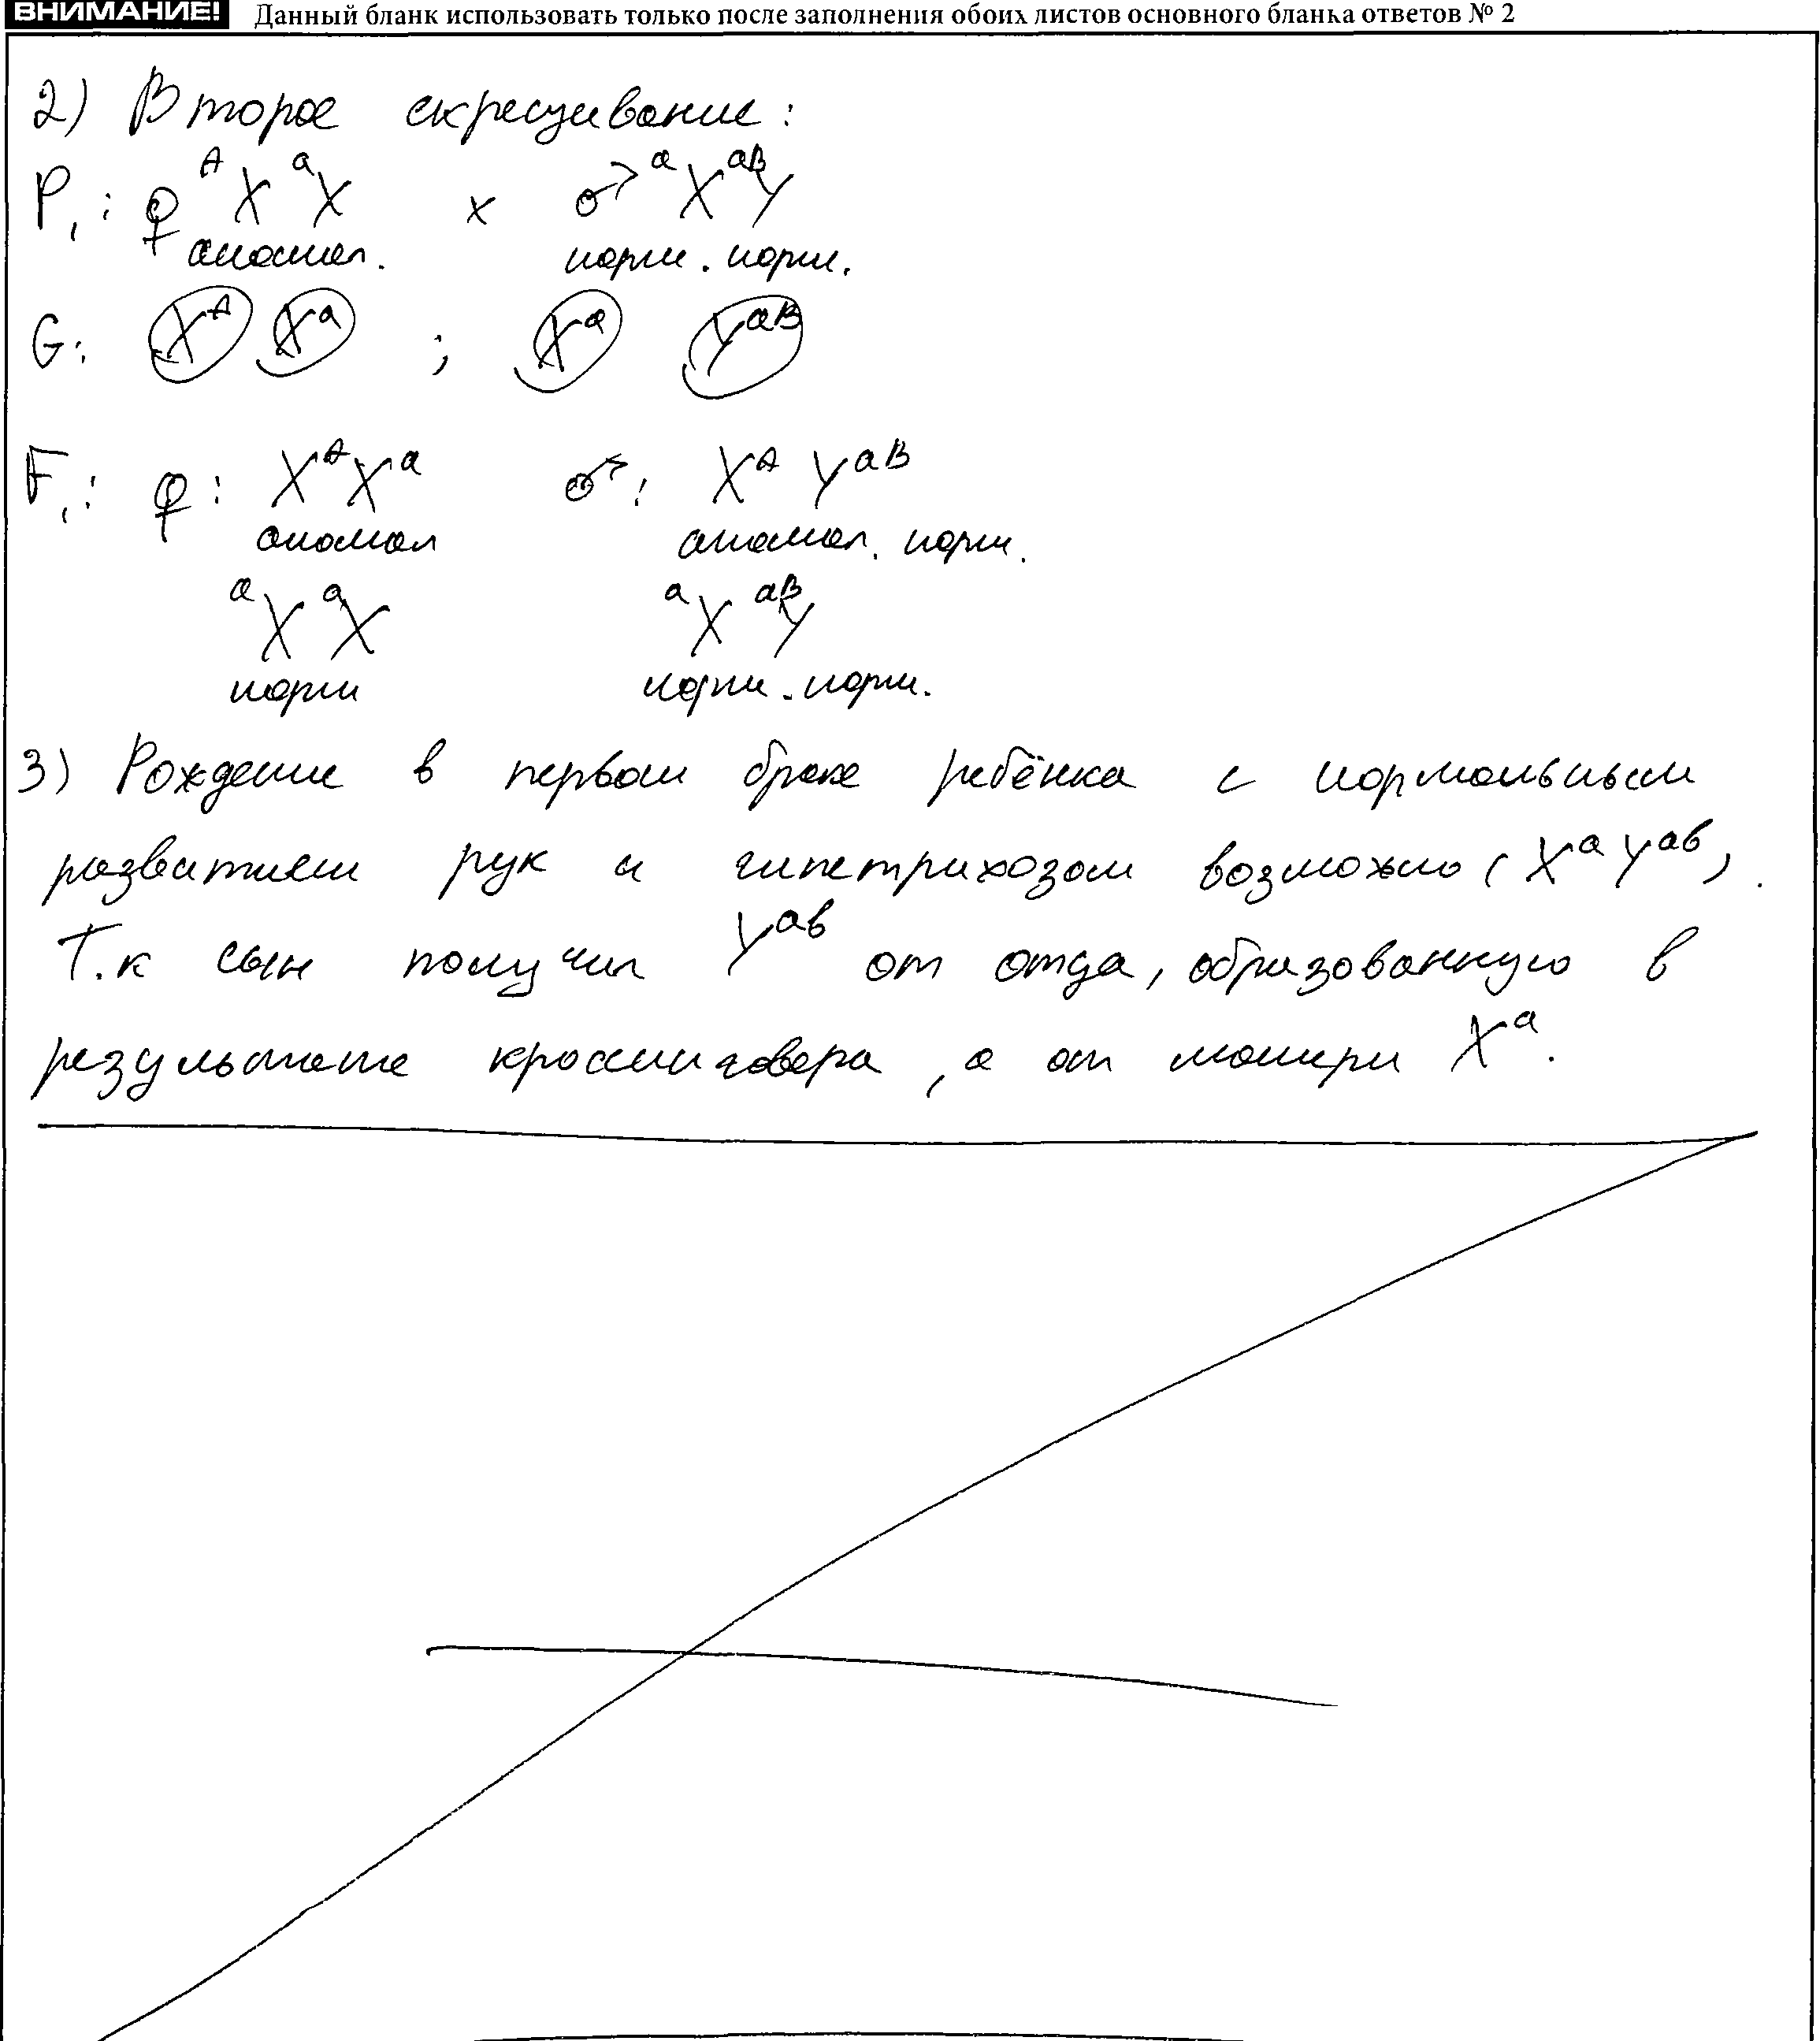 ВНИМАНИЕ! Данный бланк использовать только после заполнения обоих листов основного бланка ответов № 2
2) Второе скрещивание:
P₁: ♀ ᴬX ᵃX x ♂ ᵃX ᵃᴮY
аномал. норм. норм.
G: Xᴬ Xᵃ ; Xᵃ Yᵃᴮ
F₁: ♀: XᴬXᵃ ♂: Xᴬ Yᵃᴮ
аномал аномал. норм.
ᵃX ᵃX ᵃX ᵃᴮY
норм норм. норм.
3) Рождение в первом браке ребёнка с нормальным
развитием рук и гипетрихозом возможно (Xᵃ Yᵃᵇ).
Т.к сын получил Yᵃᵇ от отца, образованную в
результате кроссинговера, а от матери Xᵃ.